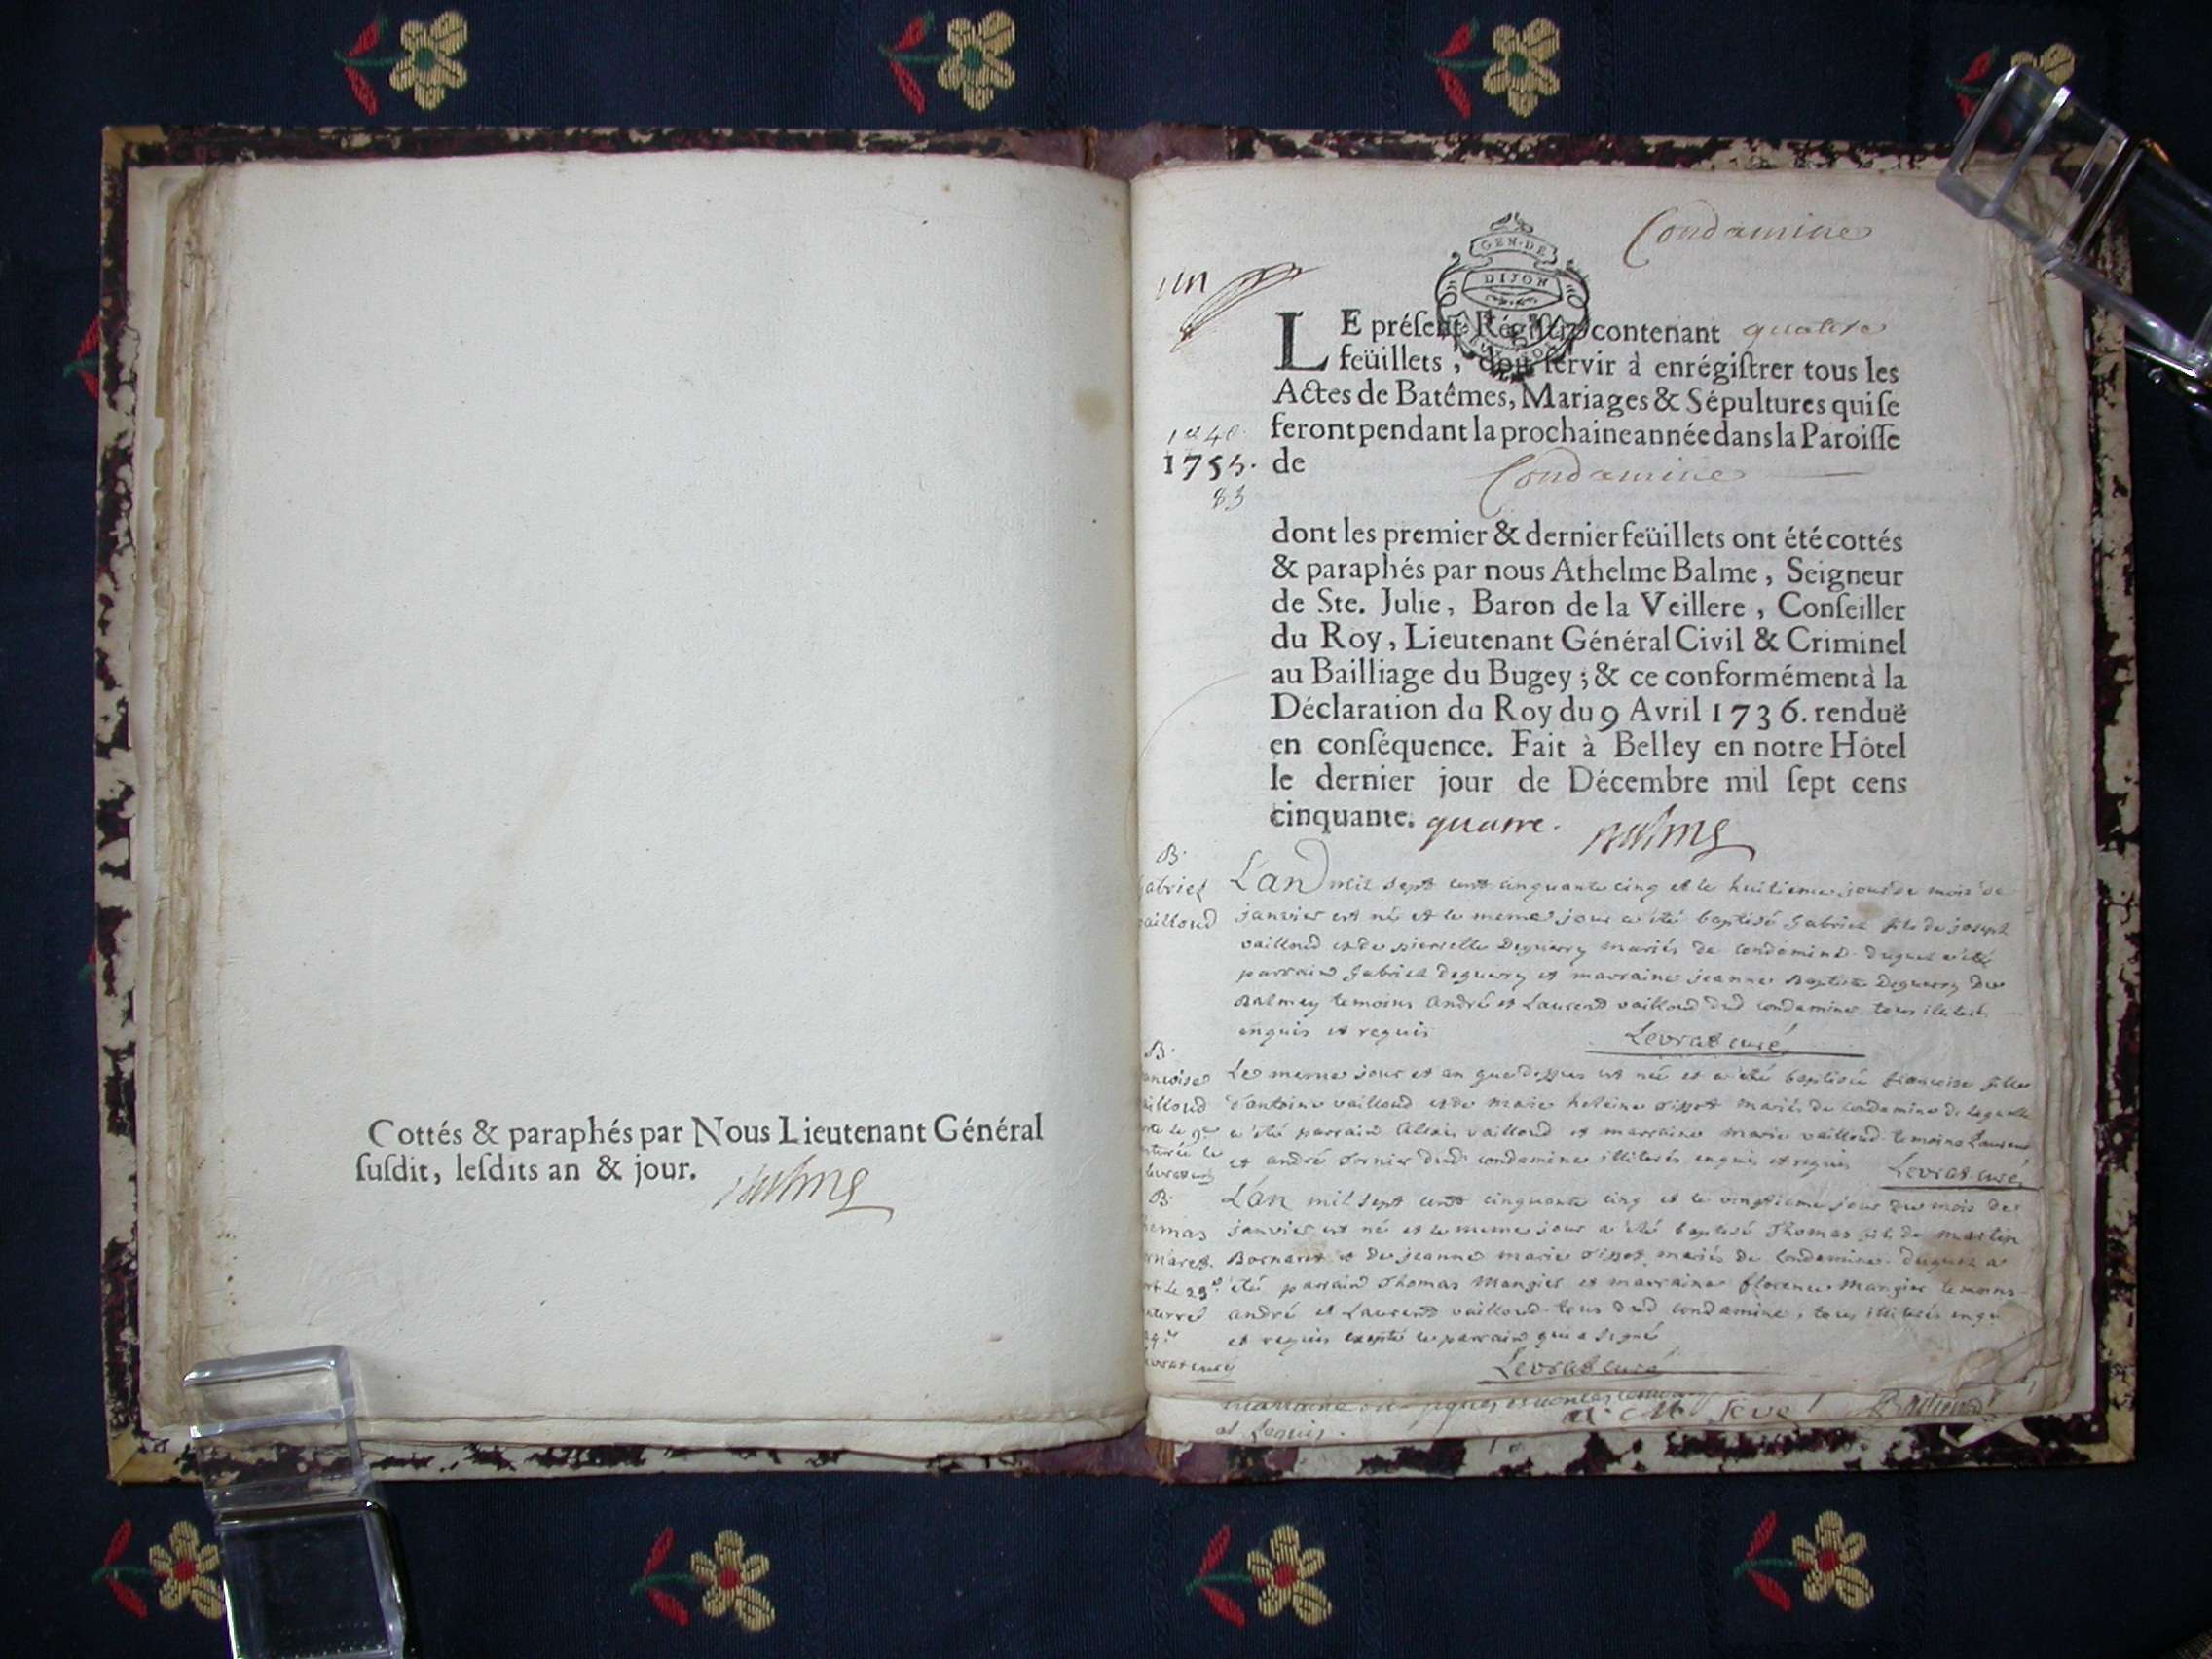 Cottés & paraphés par Nous Lieutenant Général
suſdit, leſdits an & jour.
Balme
Condamine
un
GEN·DE
DIJON
LE préſent Régiſtre contenant quatre
feüillets, doit ſervir à enrégiſtrer tous les
Actes de Batêmes, Mariages & Sépultures qui ſe
feront pendant la prochaine année dans la Paroiſſe
1755. de Condamine
83
dont les premier & dernier feüillets ont été cottés
& paraphés par nous Athelme Balme, Seigneur
de Ste. Julie, Baron de la Veillere, Conſeiller
du Roy, Lieutenant Général Civil & Criminel
au Bailliage du Bugey; & ce conformément à la
Déclaration du Roy du 9 Avril 1736. renduë
en conſéquence. Fait à Belley en notre Hôtel
le dernier jour de Décembre mil ſept cens
cinquante. quatre. Balme
B.
abriel
vailloud
L'an mil sept cent cinquante cinq et le huitieme jour de mois de
janvier est né et le meme jour a été baptisé gabriel fils de joseph
vailloud et de pierrette Deguerry mariés de condamine duquel a été
parrain gabriel Deguerry et marraine jeanne Baptiste Deguerry De
Balmey temoins andré et Laurent vailloud dud condamine tous
enquis et requis
Levrat curé
B.
ancoise
ailloud
Le meme jour et an que dessus est née et a été baptisée francoise fille
d'antoine vailloud et de marie helaine sissot mariés de condamine de laquelle
a été parrain vailloud et marraine marie vailloud temoins Laurent
et andré dud condamine illiterés enquis et requis Levrat curé
B.
homas
ornaret
L'an mil sept cent cinquante cinq et le vingtieme jour du mois de
janvier est né et le meme jour a été baptisé Thomas fils de martin
Bornaret et de jeanne marie sissot mariés de Condamine. duquel a
été parrain Thomas Mangier et marraine florence Mangier temoins
andré et Laurent vailloud tous dud condamine, tous illiterés enquis
et requis excepté le parrain qui a signé
Levrat curé
marraine
et requis.